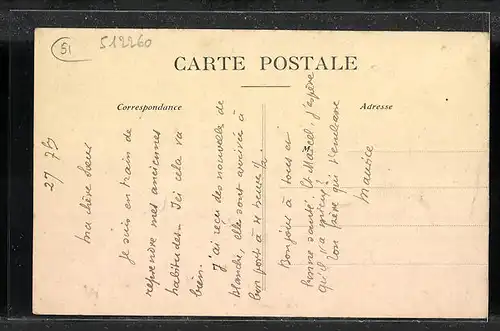 51
512260
CARTE POSTALE
Correspondance
Adresse
27
Ma chère Sœur
Je suis en train de
reprendre mes anciennes
habitudes. Ici cela va
bien.
J'ai reçu des nouvelles de
blanche, elle sont arrivées à
bon port à
Bonjour à tous et
bonne santé. Et Marcel, j'espère
qu'il va mieux.
Ton père qui t'embrasse
Maurice